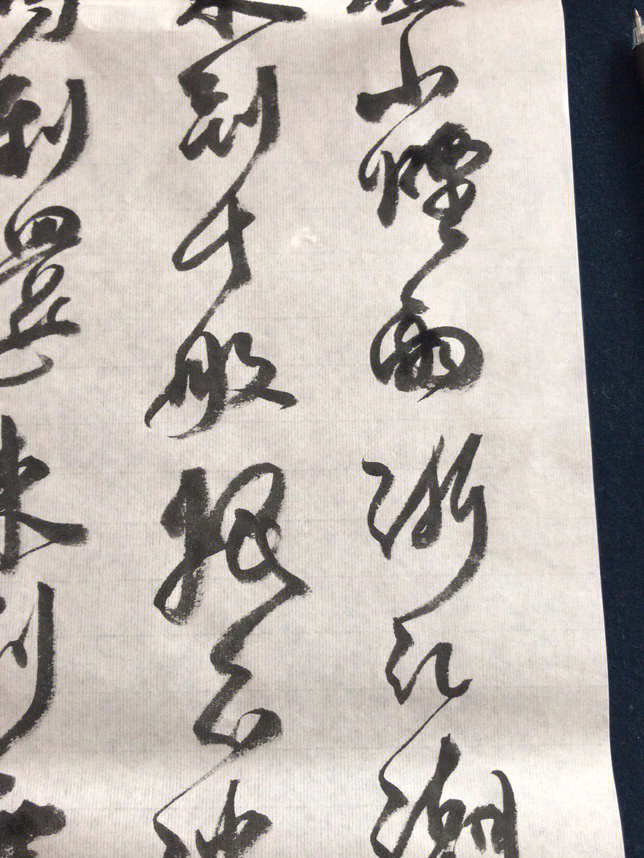 山煙雨浙江潮
未到千般恨不消
得到還來別